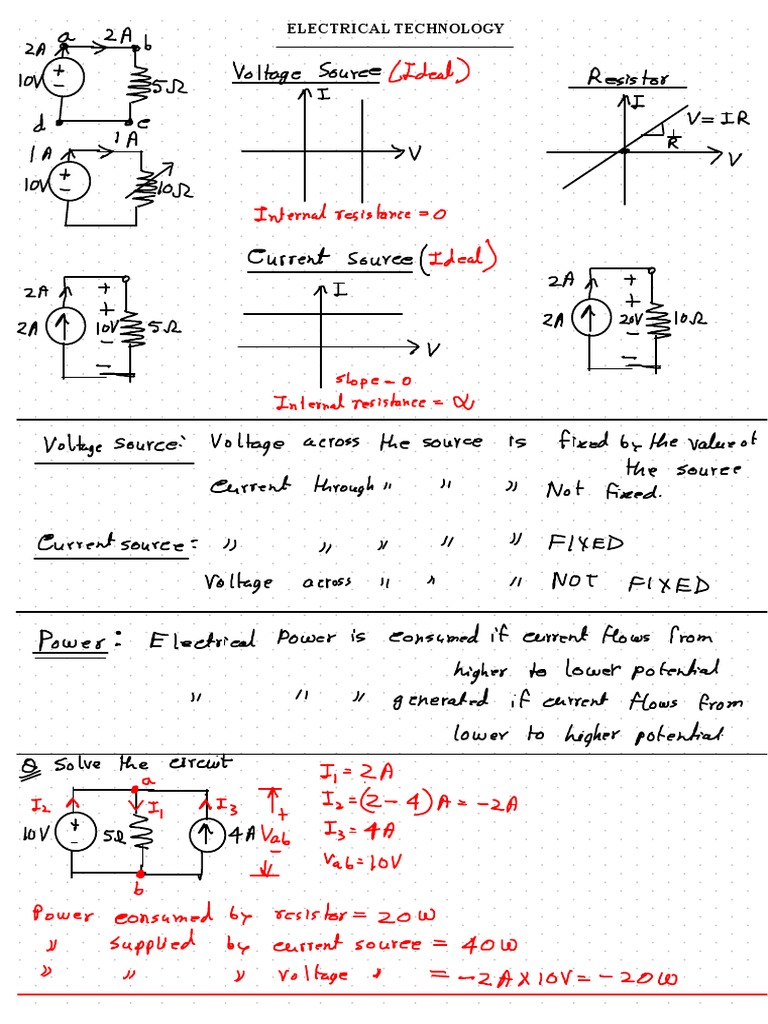 ELECTRICAL TECHNOLOGY
a 2A b
2A
10V + − 5Ω
d c
Voltage Source (Ideal)
I
V
Internal resistance = 0
Resistor
I
V = IR
1/R
V
1A 1A
10V + − 10Ω
Current Source (Ideal)
I
V
slope = 0
Internal resistance = α
2A + +
2A 10V 5Ω
− −
2A + +
2A 20V 10Ω
− −
Voltage source: Voltage across the source is fixed by the value of
the source
Current through " " " Not fixed.
Current source: " " " " " FIXED
Voltage across " " " NOT FIXED
Power: Electrical Power is consumed if current flows from
higher to lower potential
" " " generated if current flows from
lower to higher potential.
Q Solve the circuit
a
I2 I1 I3
10V + − 5Ω 4A
+ Vab −
b
I1 = 2A
I2 = (2 − 4) A = −2A
I3 = 4A
Vab = 10V
Power consumed by resistor = 20W
" supplied by current source = 40W
" " " voltage " = −2A X 10V = −20W